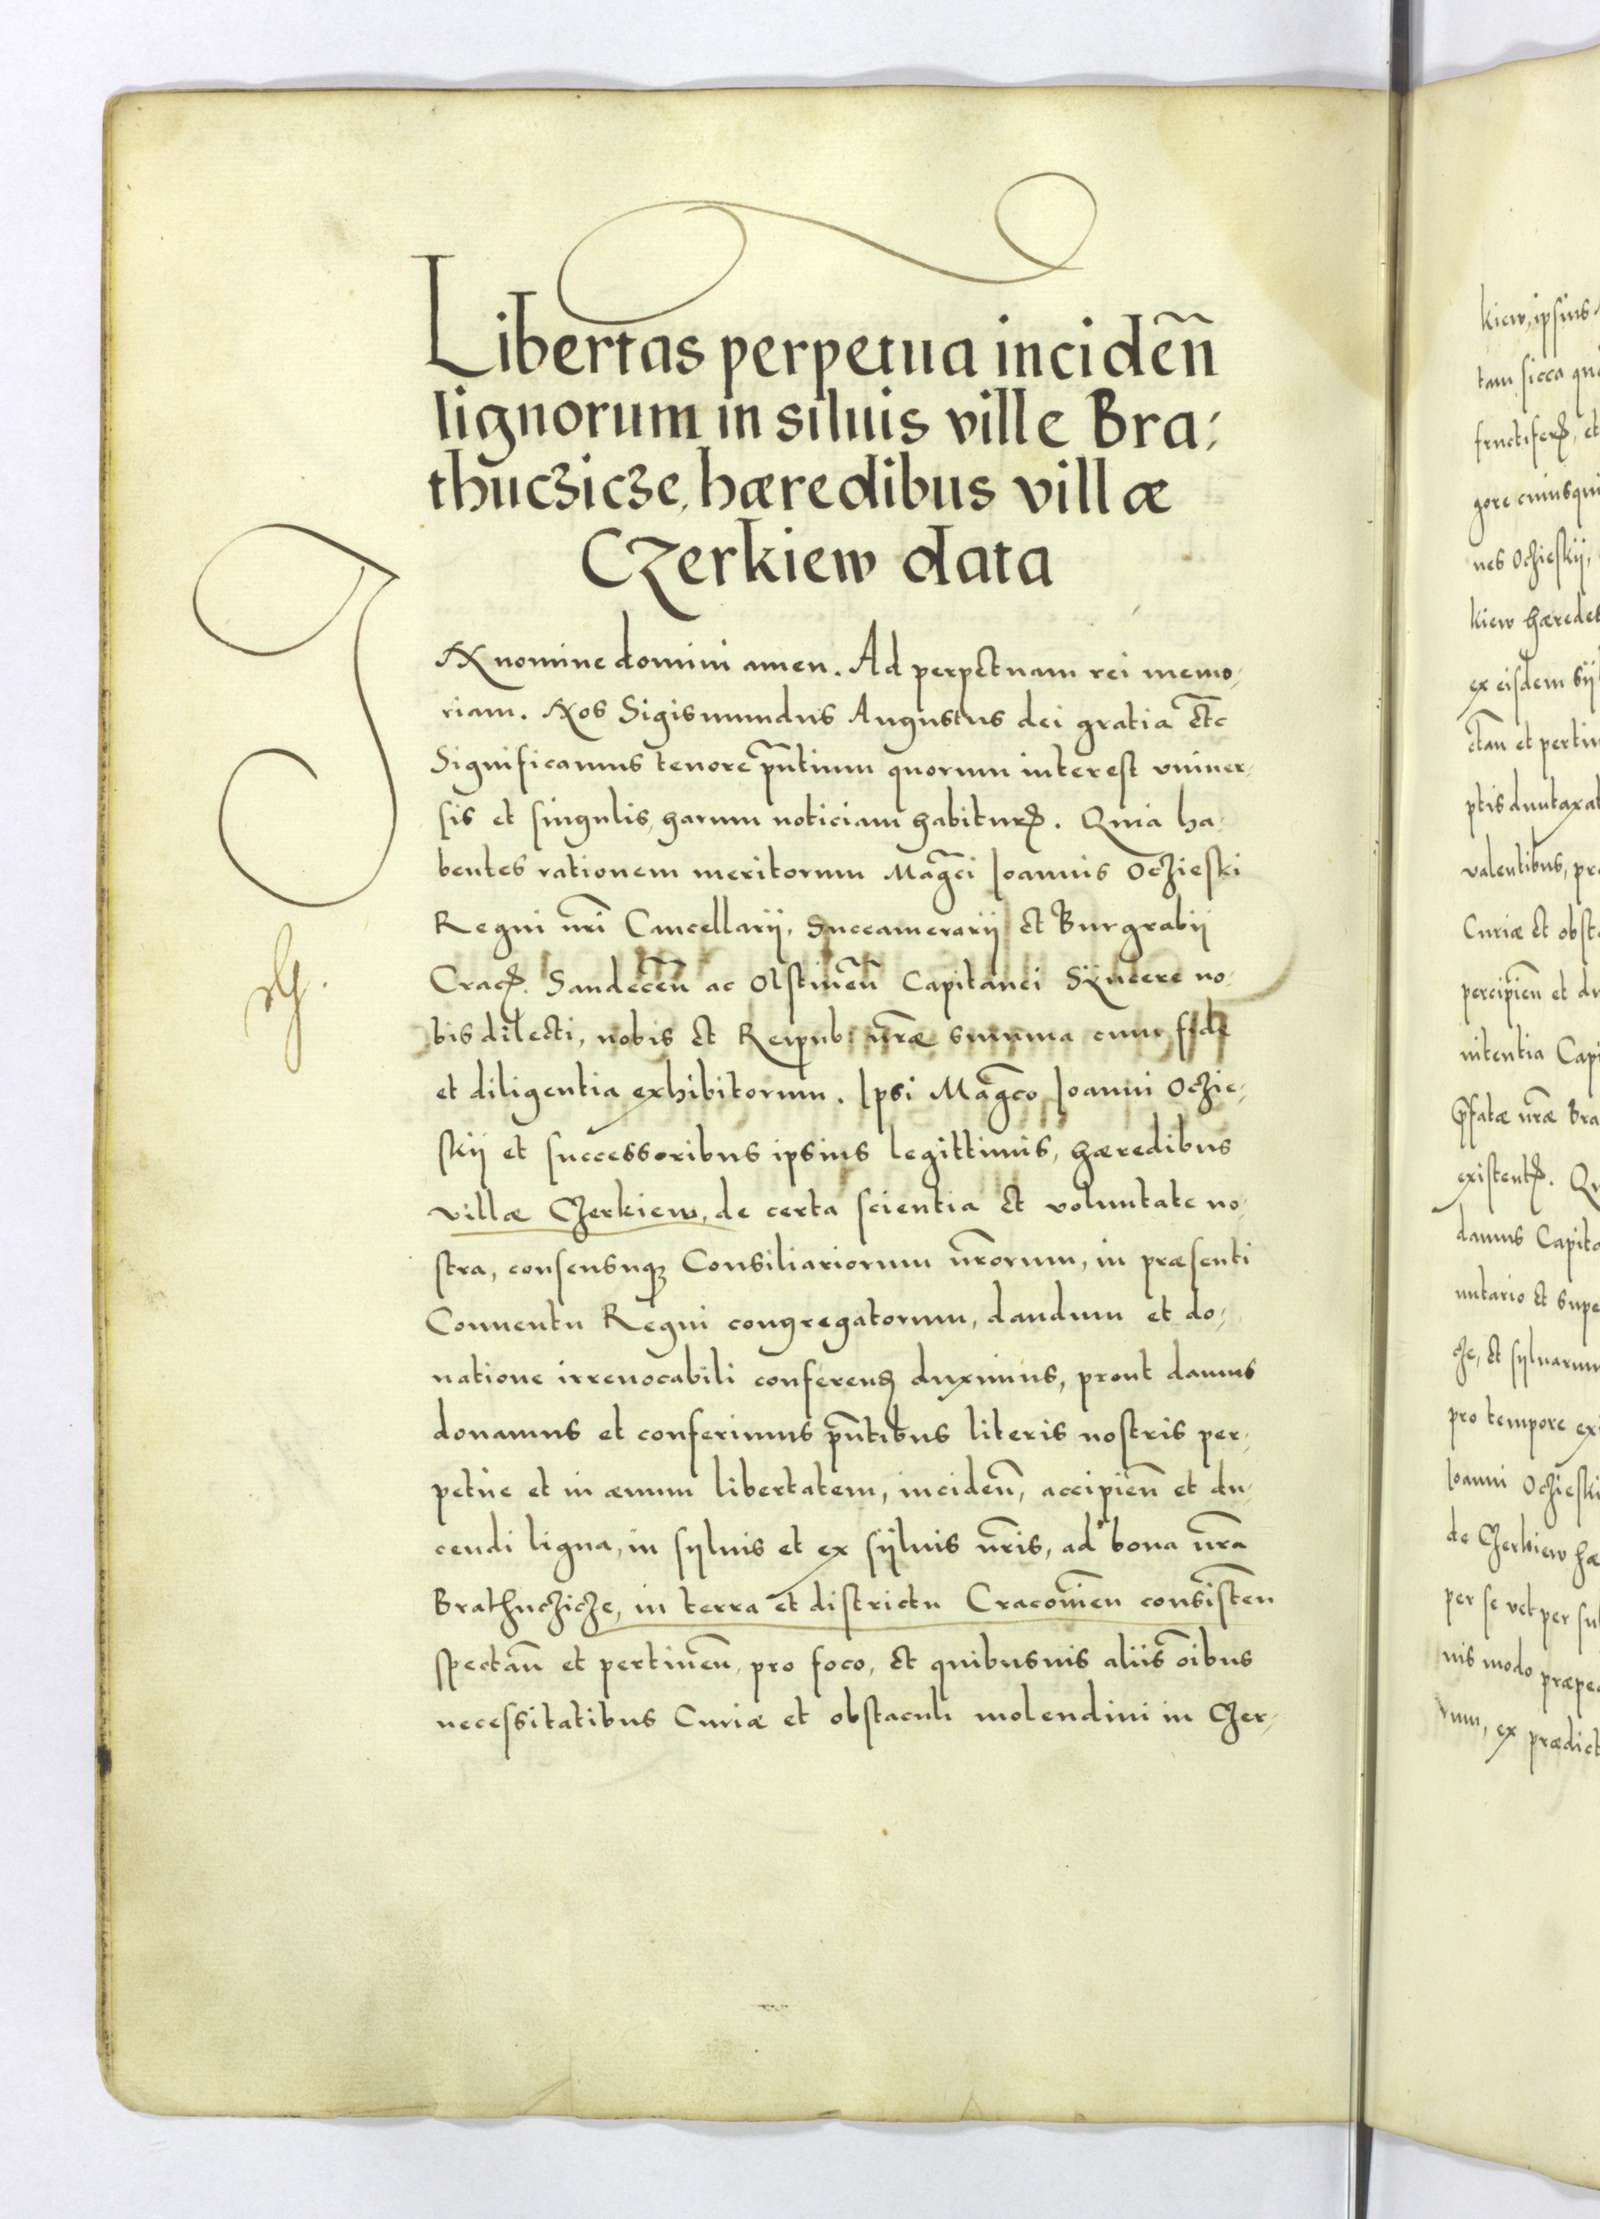 Libertas perpetua inciden̄
lignorum in siluis ville Bra-
thuczicze, hæredibus villæ
Czerkiew data
IN nomine domini amen. Ad perpetuam rei memo-
riam. Nos Sigismundus Augustus dei gratia etc
Significamus tenore pn̄tium quorum interest vniuer-
sis et singulis, harum noticiam habiturꝝ. Quia ha-
bentes rationem meritorum Mag̅ci Joannis Oczieski
Regni nr̄i Cancellarij, Succamerarij et Burgrabij
Cracꝝ. Sandecen̄ ac Olstinen̄ Capitanei Syncere no-
bis dilecti, nobis et Reipub: nr̄æ summa cum fide
et diligentia exhibitorum. Ipsi Mag̅co Joanni Oczie-
skij et successoribus ipsius legittimis, hæredibus
villæ Czerkiew, de certa scientia et voluntate no-
stra, consensuqꝫ Consiliariorum nr̄orum, in præsenti
Conuentu Regni congregatorum, dandum et do-
natione irreuocabili conferenꝫ duximus, prout damus
donamus et conferimus pn̄tibus literis nostris per-
petue et in æuum libertatem, inciden̄, accipien̄ et du-
cendi ligna, in syluis et ex syluis nr̄is, ad bona nr̄a
Brathuczicze, in terra et districtu Cracouien̄ consisten̄
spectan̄ et pertinen̄, pro foco, et quibusuis aliis oībus
necessitatibus Curiæ et obstaculi molendini in Czer-
kiew, ipsius
tam sicca
fructiferꝝ, et
gore cuiusqui
nes Oczieskij,
kiew hærede
ex eisdem
et pertin
ptis duntaxat
valentibus,
Curiæ et obst
percipien̄ et du
nitentia Capi
p̄fatæ nr̄æ Bra
existentꝝ. Qu
damus Capita
nutario et supe
cze, et syluarum
pro tempore ex
Joanni Oczieski
de Czerkiew hæ
per se vel per su
uis modo præpe
rum, ex prædict